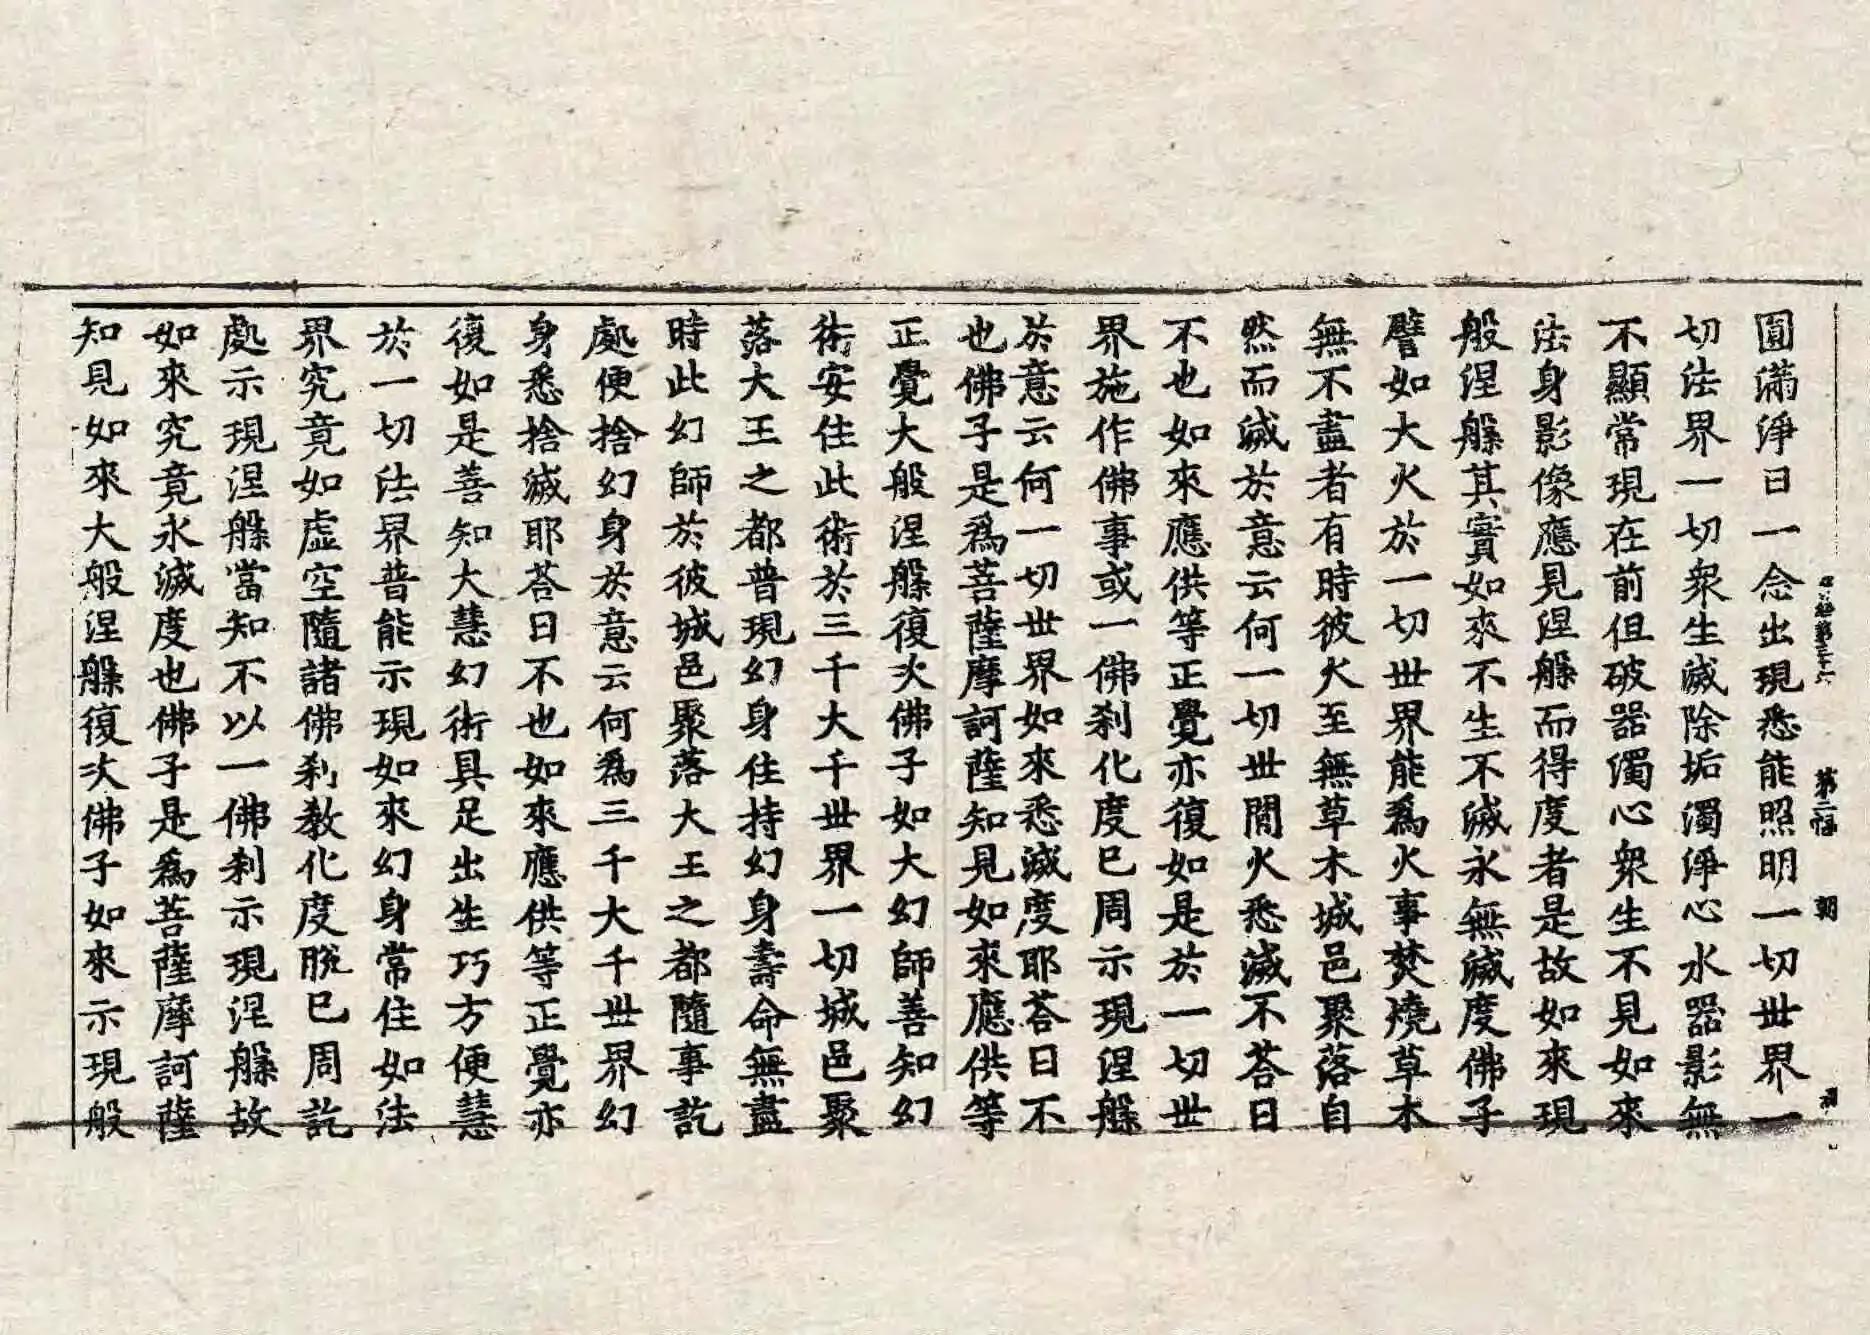 經第三十六 第二幅 朝
圓滿淨日一念出現悉能照明一切世界一
切法界一切衆生滅除垢濁淨心水器影無
不顯常現在前但破器濁心衆生不見如來
法身影像應見涅槃而得度者是故如來現
般涅槃其實如來不生不滅永無滅度佛子
譬如大火於一切世界能爲火事焚燒草木
無不盡者有時彼火至無草木城邑聚落自
然而滅於意云何一切世間火悉滅不荅曰
不也如來應供等正覺亦復如是於一切世
界施作佛事或一佛刹化度已周示現涅槃
於意云何一切世界如來悉滅度耶荅曰不
也佛子是爲菩薩摩訶薩知見如來應供等
正覺大般涅槃復次佛子如大幻師善知幻
術安住此術於三千大千世界一切城邑聚
落大王之都普現幻身住持幻身壽命無盡
時此幻師於彼城邑聚落大王之都隨事訖
處便捨幻身於意云何爲三千大千世界幻
身悉捨滅耶荅曰不也如來應供等正覺亦
復如是善知大慧幻術具足出生巧方便慧
於一切法界普能示現如來幻身常住如法
界究竟如虛空隨諸佛刹教化度脫已周訖
處示現涅槃當知不以一佛刹示現涅槃故
如來究竟永滅度也佛子是爲菩薩摩訶薩
知見如來大般涅槃復次佛子如來示現般